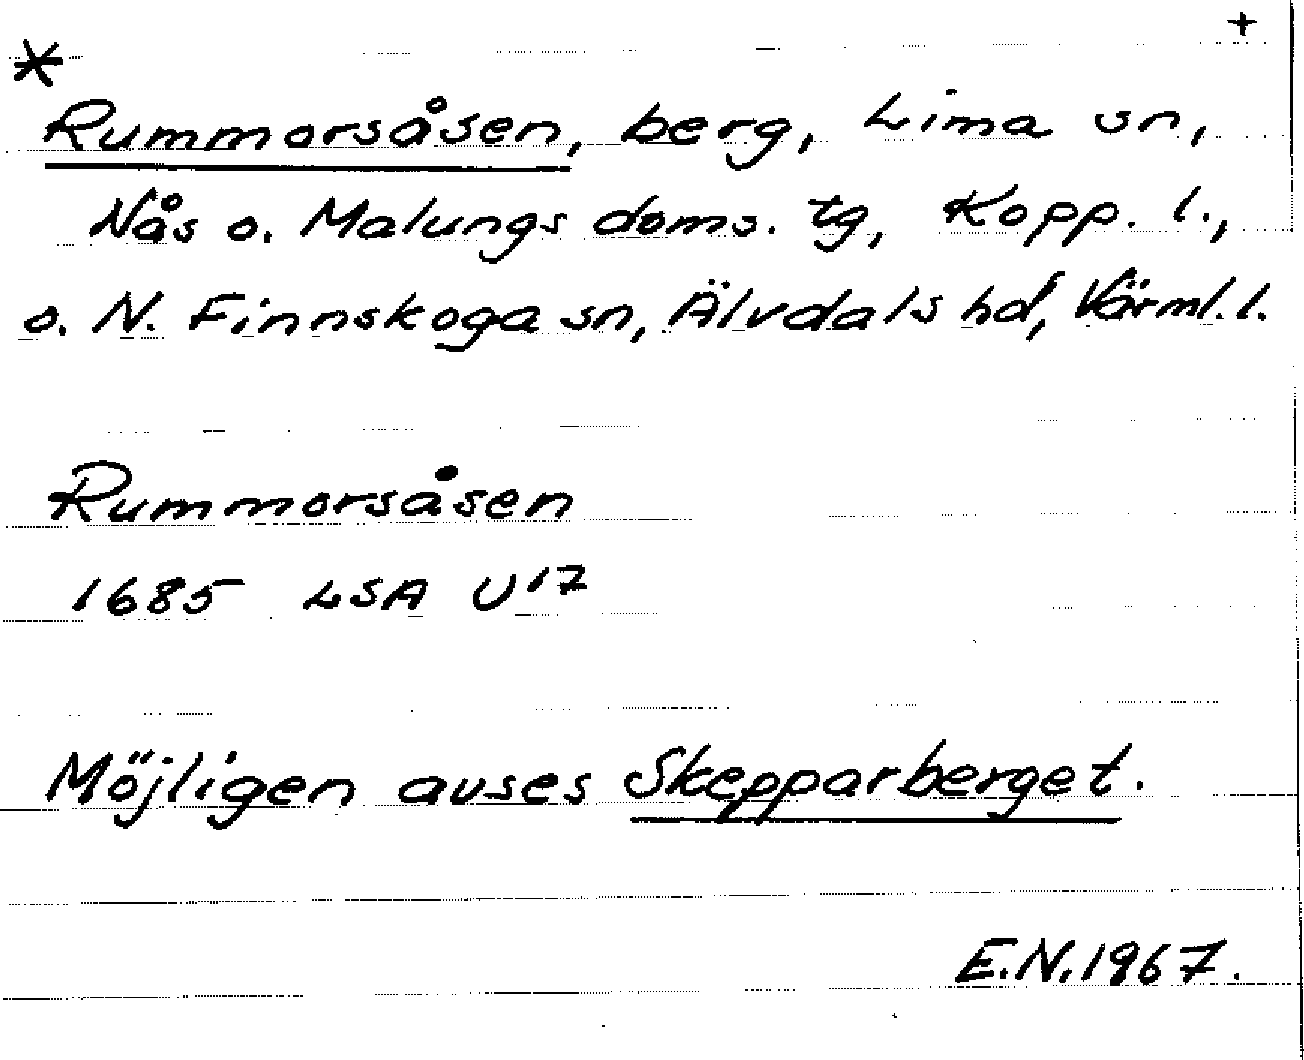 +
*
Rummorsåsen, berg, Lima sn,
Nås o. Malungs doms. tg, Kopp. l.,
o. N. Finnskoga sn, Älvdals hd, Värml. l.
Rummorsåsen
1685 LSA U17
Möjligen avses Skepparberget.
E.N. 1967.